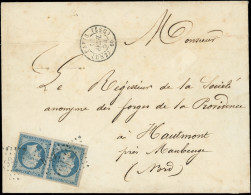 Monsieur
Le Régisseur de la Société
anonyme des forges de la Providence
à Hautmont
près Maubeuge
(Nord)